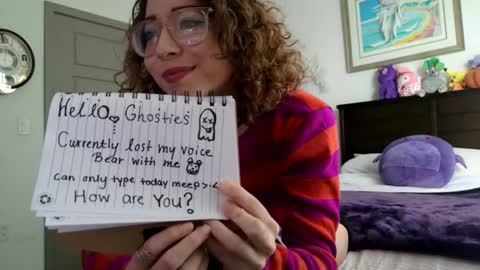 Hello Ghosties
Currently lost my voice
Bear with me
can only type today meep >.<
How are You?